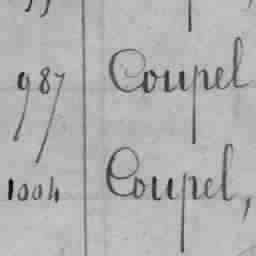 987 Coupel
1004 Coupel,